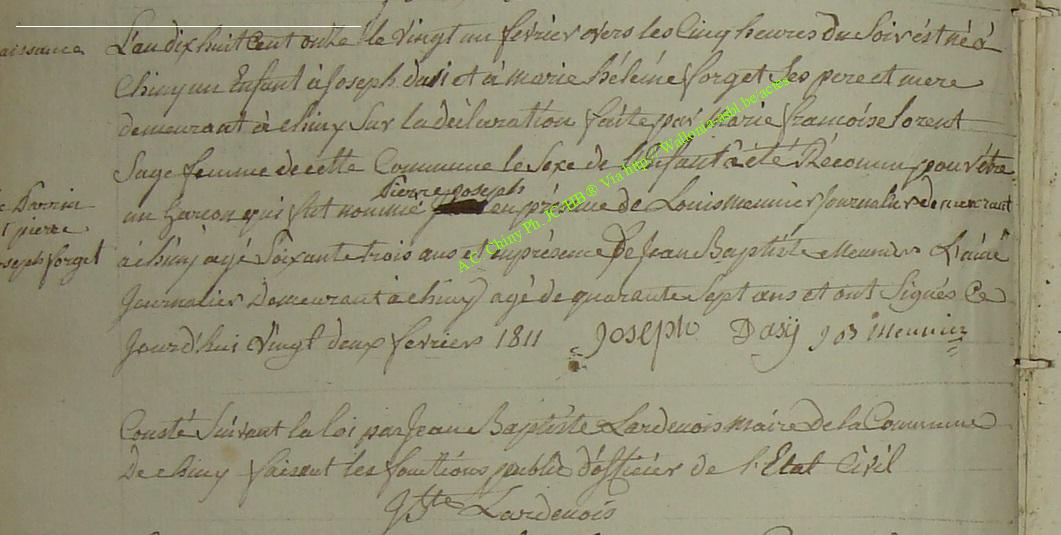 aissance
L'an dix huit Cent onze le Vingt un fevrier vers les Cinq heures du Soir ést né à
Chiny un Enfant à Joseph Dasi et à marie héléine forget Ses pere et mere
demeurant à chiny Sur la déclaration faite par Marie françoise lorent
Sage femme de cette Commune le Sexe de l'Enfant à été Réconnu pour être
Pierre Joseph
un Garçon qui ƒut nommé en présence de Louis meunier Journalier demeurant
pierre
oseph forget
à chiny agé Soixante trois ans et En présence de Jean Baptiste Meunier L'ainé
Journalier Demeurant à chiny agé de quarante Sept ans et ont Signés Ce
Jourd'hui Vingt deux fevrier 1811 Joseph Dasÿ J B Meunier
Consté Suivant la loi par Jean Baptiste Lardenois maire de la Commune
De chiny faisant les fonctions public d'officier de l'Etat Civil
JBte Lardenois
A.C. Chiny Ph. JC-HB® Via http/Wallonia-asbl.be/actes